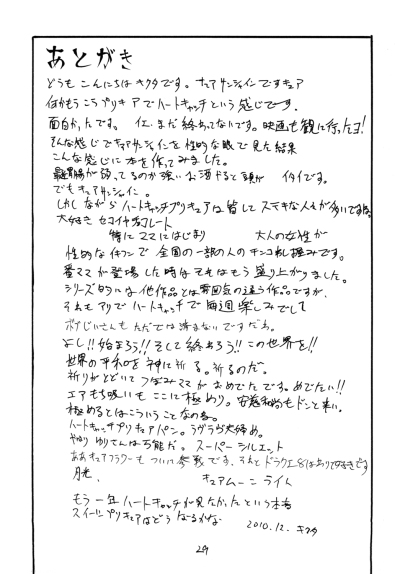 あとがき
どうもこんにちはキクタです。キュアサンシャインですキュア
何かもうこうプリキュアでハートキャッチという感じです。
面白かったです。イエ、まだ終わってないです。映画も観に行ったヨ!
そんな感じでキュアサンシャインを性的な眼で見た結果
こんな感じに本を作ってみました。
が弱ってるのか強いお酒やると頭が イタイです。
でもキュアサンシャイン。
しかしながらハートキャッチプリキュアは皆してステキな人が多いですね。
大好き セコイヤチョコレート
特にママにはじまり 大人の女性が
性的な体つで全国の一部の人の極みです。
番ママが登場した時はそれはもう盛り上がりました。
シリーズ的には他作品とは雰囲気の違う作品ですが、
それもアリでハートキャッチで毎週楽しみでして
ただでは済まないですだよ。
よし!!始まろう!!そして終わろう!!この世界を!!
世界の平和を神に祈る。祈るのだ。
祈りがとどいてつぼみママがおめでたでる。めでたい!!
エアもも吸いもここに極めり。もドンと来い。
極めるとはこういうことなのる。
ハートキャッチプリキュアバン。ラヴラヴ夫婦め。
やはりゆりさんは万能だ。スーパーシルエット
ああキュアフラワーもついに参戦です。それと
月光。 キュアムーンライト
もう一年ハートキャッチが見たかったという本音
スイートプリキュアはどうなーるかな 2010.12. キクタ
29